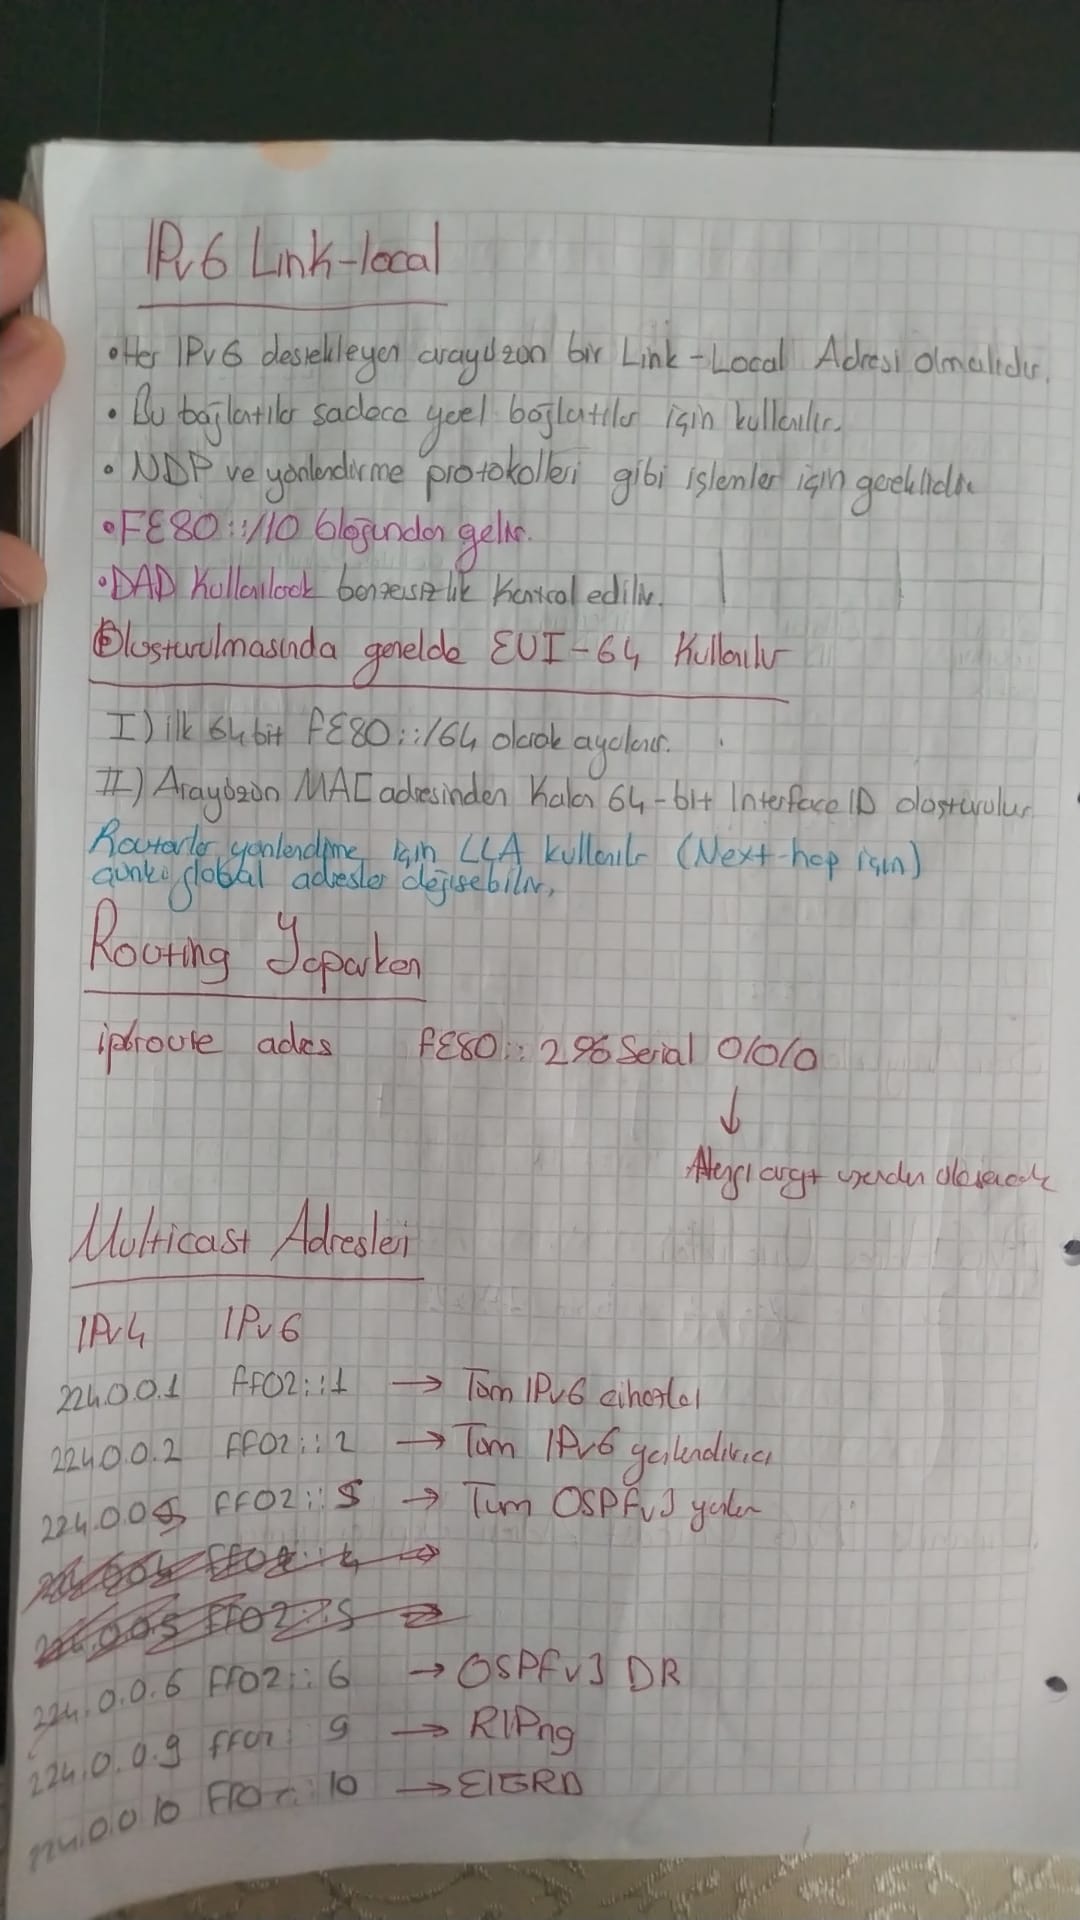 IPv6 Link-local
• Her IPv6 destekleyen arayüzün bir Link-Local Adresi olmalıdır.
• Bu bağlantılar sadece yerel bağlantılar için kullanılır.
• NDP ve yönlendirme protokolleri gibi işlemler için gereklidir.
• FE80::/10 bloğundan gelir.
• DAD Kullanılarak benzersizlik Kontrol edilir.
Oluşturulmasında genelde EUI-64 Kullanılır
I) ilk 64 bit FE80::/64 olarak ayarlanır.
II) Arayüzün MAC adresinden Kalan 64-bit Interface ID oluşturulur
Routerlar yönlendirme için LLA kullanılır (Next-hop için)
çünkü global adresler değişebilir,
Routing Yaparken
route adres FE80::2%Serial 0/0/0
↓
üzerden
Multicast Adresleri
IPv4 IPv6
224.0.0.1 FF02::1 → Tüm IPv6 cihazlar
224.0.0.2 FF02::2 → Tüm IPv6 yönlendirici
224.0.0.5 FF02::5 → Tüm OSPFv3
224.0.0.6 FF02::6 → OSPFv3 DR
224.0.0.9 9 → RIPng
224.0.0.10 10 →